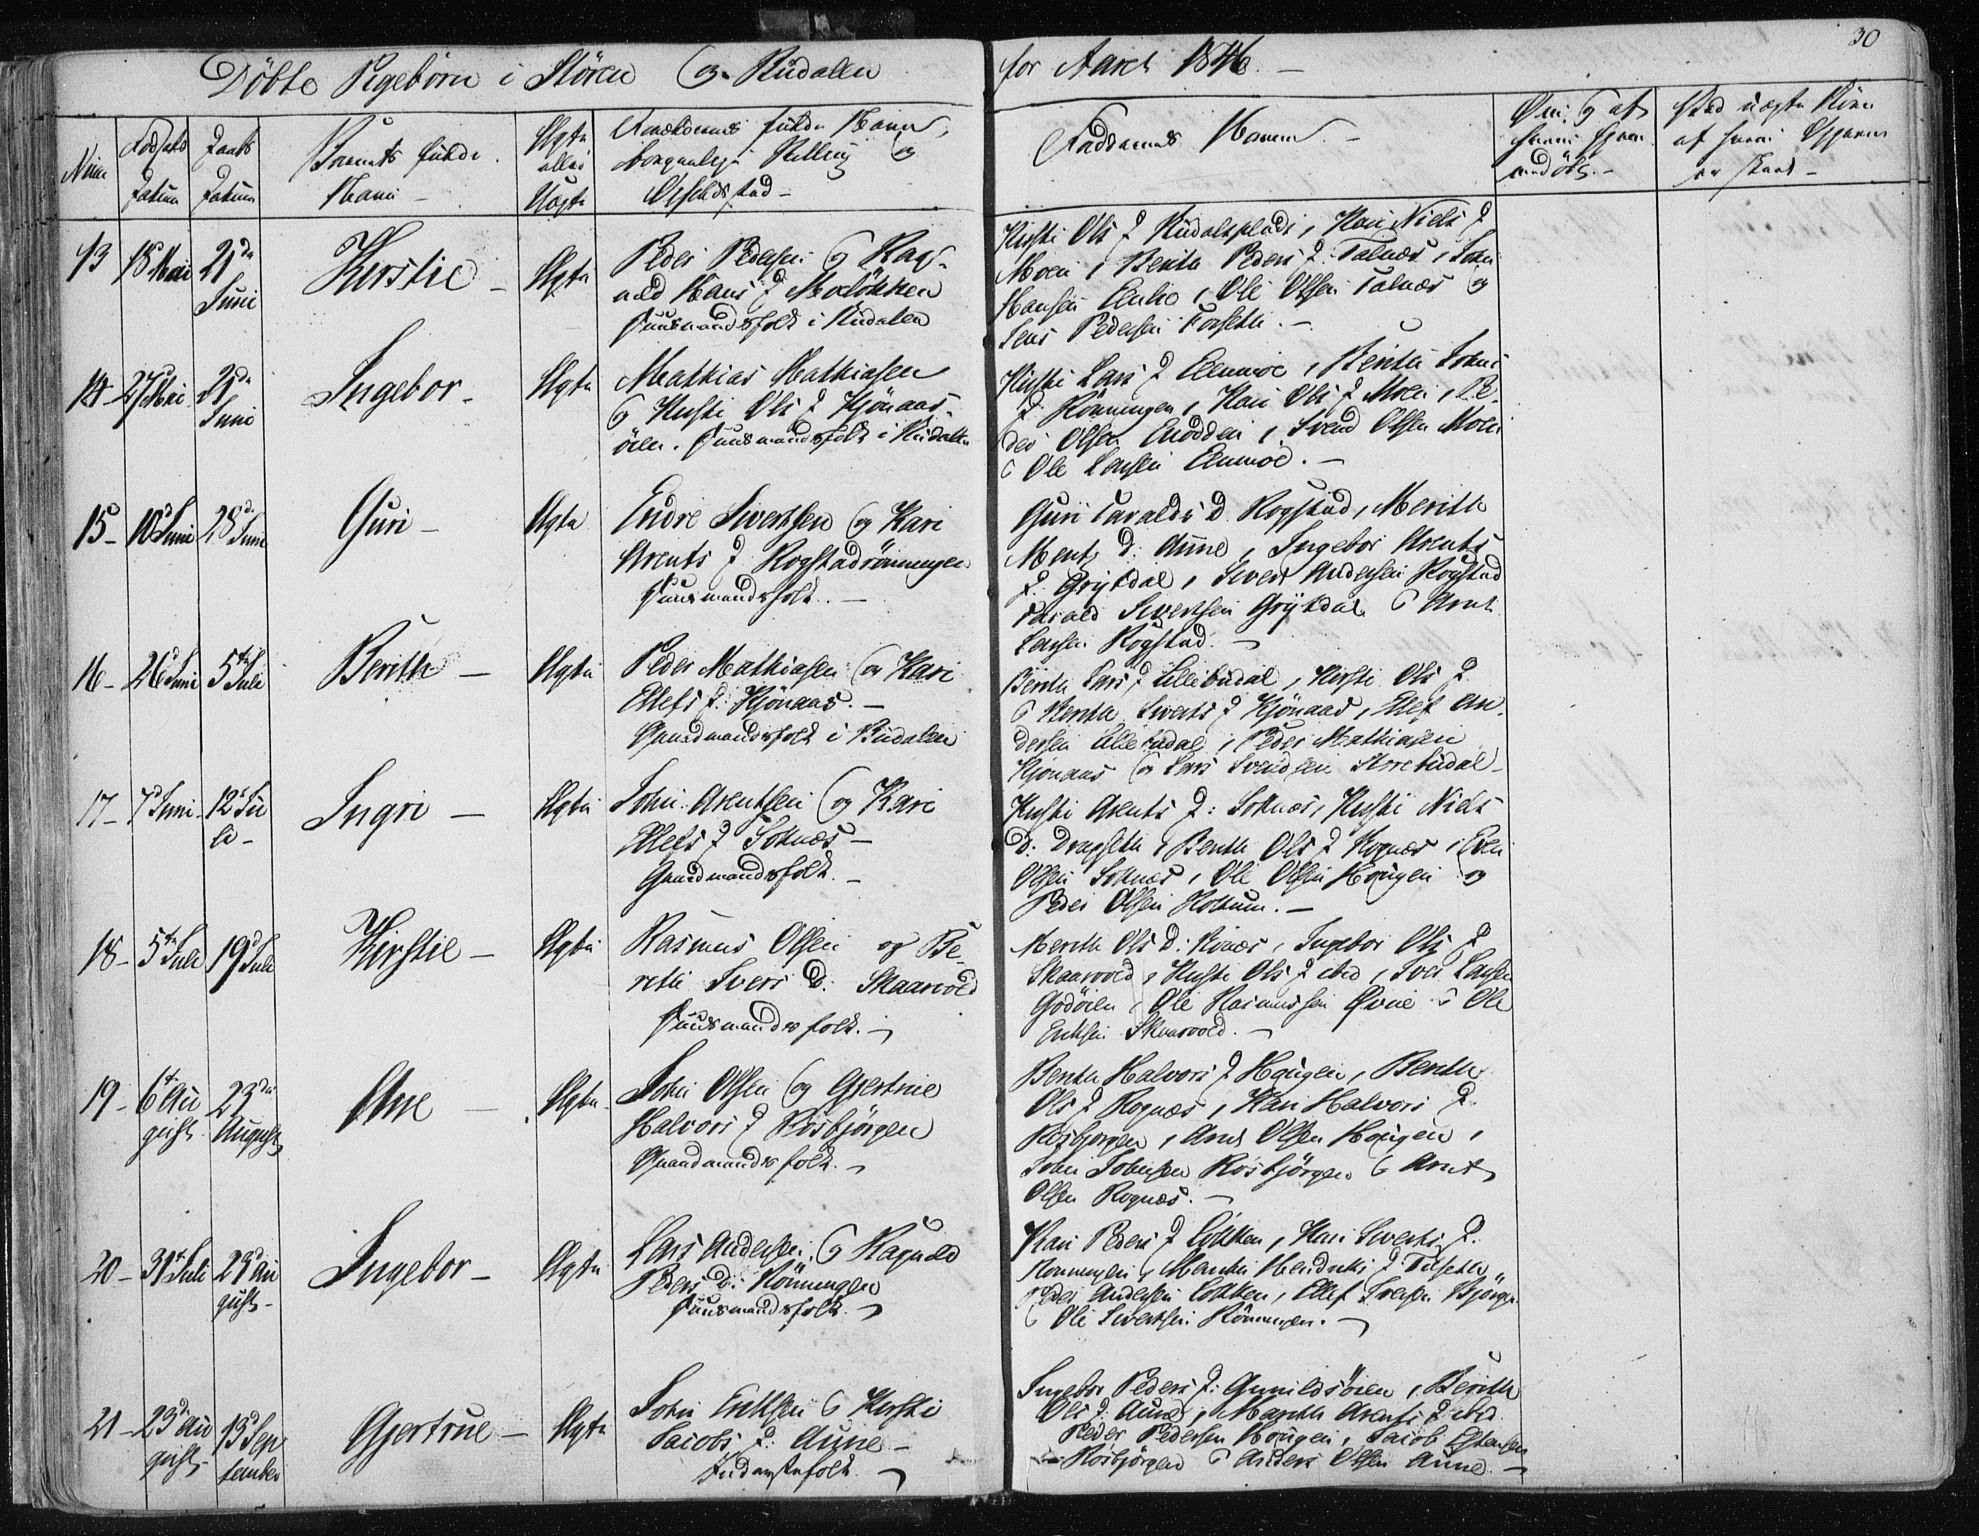 30
Döbte Pigebörn i Stören og Budalen for Aaret 1846. —
Num
Fødsels Datum
Daabs Datum
Barnets fulde Navn —
Ægte eller Uægte
Forældrenes fulde Navne, borgerlige Stilling og Opholdssted —
Faddernes Navne. —
13
18 Mai
21de Juni
Kirstie —
Ægte
Peder Pedersen og Rag-
nild Hans D Moeløkken
Huusmandsfolk i Budalen
Kirsti Ols D Budalsplads, Kari Niels D
Moen, Berith Peders D: Talnæs, John
Hansen Enlie, Ole Olsen Talnæs og
Jens Pedersen Forseth. —
14
27 Mai
21de Juni
Ingebor —
Ægte
Mathias Mathiasen
og Kirsti Ols D Kjönaas-
öien. Huusmandsfolk i Budalen
Kirsti Lars D Enmoe, Berith Johns
D: Rönningen, Kari Ols D Moen, Pe-
der Olsen Enodden, Svend Olsen Moen
og Ole Larsen Enmoe. —
15 —
10 Juni
28d Juni
Guri —
Ægte
Endre Sivertsen og Kari
Arents D Rogstadrönningen
Huusmandsfolk. —
Guri Taralds D Rogstad, Merith
Ments D: Aune, Ingebor Arents
D. Grytdal, Sivert Andersen Rogstad
Tarald Sivertsen Grytdal og Arnt
Larsen Rogstad. —
16 —
26 Juni
5te Juli
Berith —
Ægte
Peder Mathiasen og Kari
Ellefs D: Kjönaas. —
Gaardmandsfolk i Budalen
Berith Lars D Lillebudal, Kirsti Ols D
og Berith Siverts D Kjönaas, Ellef An-
dersen Lillebudal, Peder Mathiasen
Kjönaas og Lars Svendsen Storebudal —
17 —
7d Juni
12d Ju
li —
Ingri —
Ægte
John Arentsen og Kari
Ellefs D Soknæs —
Gaardmandsfolk. —
Kirsti Arents D: Soknæs, Kirsti Niels
D: Dragseth, Berith Ols D Rognæs, Even
Olsen Soknæs, Ole Olsen Hougen og
Peder Olsen Rostum. —
18 —
5te Juli
19d Juli
Kirstie —
Ægte
Rasmus Olsen og Be-
reth Ivers D: Skaarvold
Huusmandsfolk. —
Merith Ols D: Kvæs, Ingebor Ols D
Skaarvold, Kirsti Ols D ibid, Iver Larsen
Godöien, Ole Rasmussen Øvrie og Ole
Eriksen Skaarvold. —
19 —
6te Au
gust
23de
August
Ane —
Ægte
John Olsen og Gjertrue
Halvors D Rosbjörgen
Gaardmandsfolk. —
Berith Halvors D Hougen, Berith
Ols D Rognæs, Kari Halvors D.
Rosbjörgen, Arnt Olsen Hougen,
John Johnsen Rosbjörgen og Arnt
Olsen Rognæs. —
20 —
31te Juli
23d Au
gust —
Ingebor —
Ægte
Lars Andersen og Ragnild
Peders D: Rönningen
Huusmandsfolk. —
Kari Peders D Løkken, Kari Siverts D.
Rönningen, Marith Hendriks D Folseth
Peder Andersen Løkken, Ellef Iversen Bjørgen
og Ole Sivertsen Rönningen. —
21 —
23d Au
gust —
13d Sep
tember
Gjertrue —
Ægte
John Eriksen og Kirsti
Jacobs D: Aune —
Inderstefolk. —
Ingebor Peders D: Gunildsöien, Berith
Ols D: Aune, Marith Arents D ibid
Peder Pedersen Hougen, Jacob Estensen
Rosbjörgen og Anders Olsen Aune. —